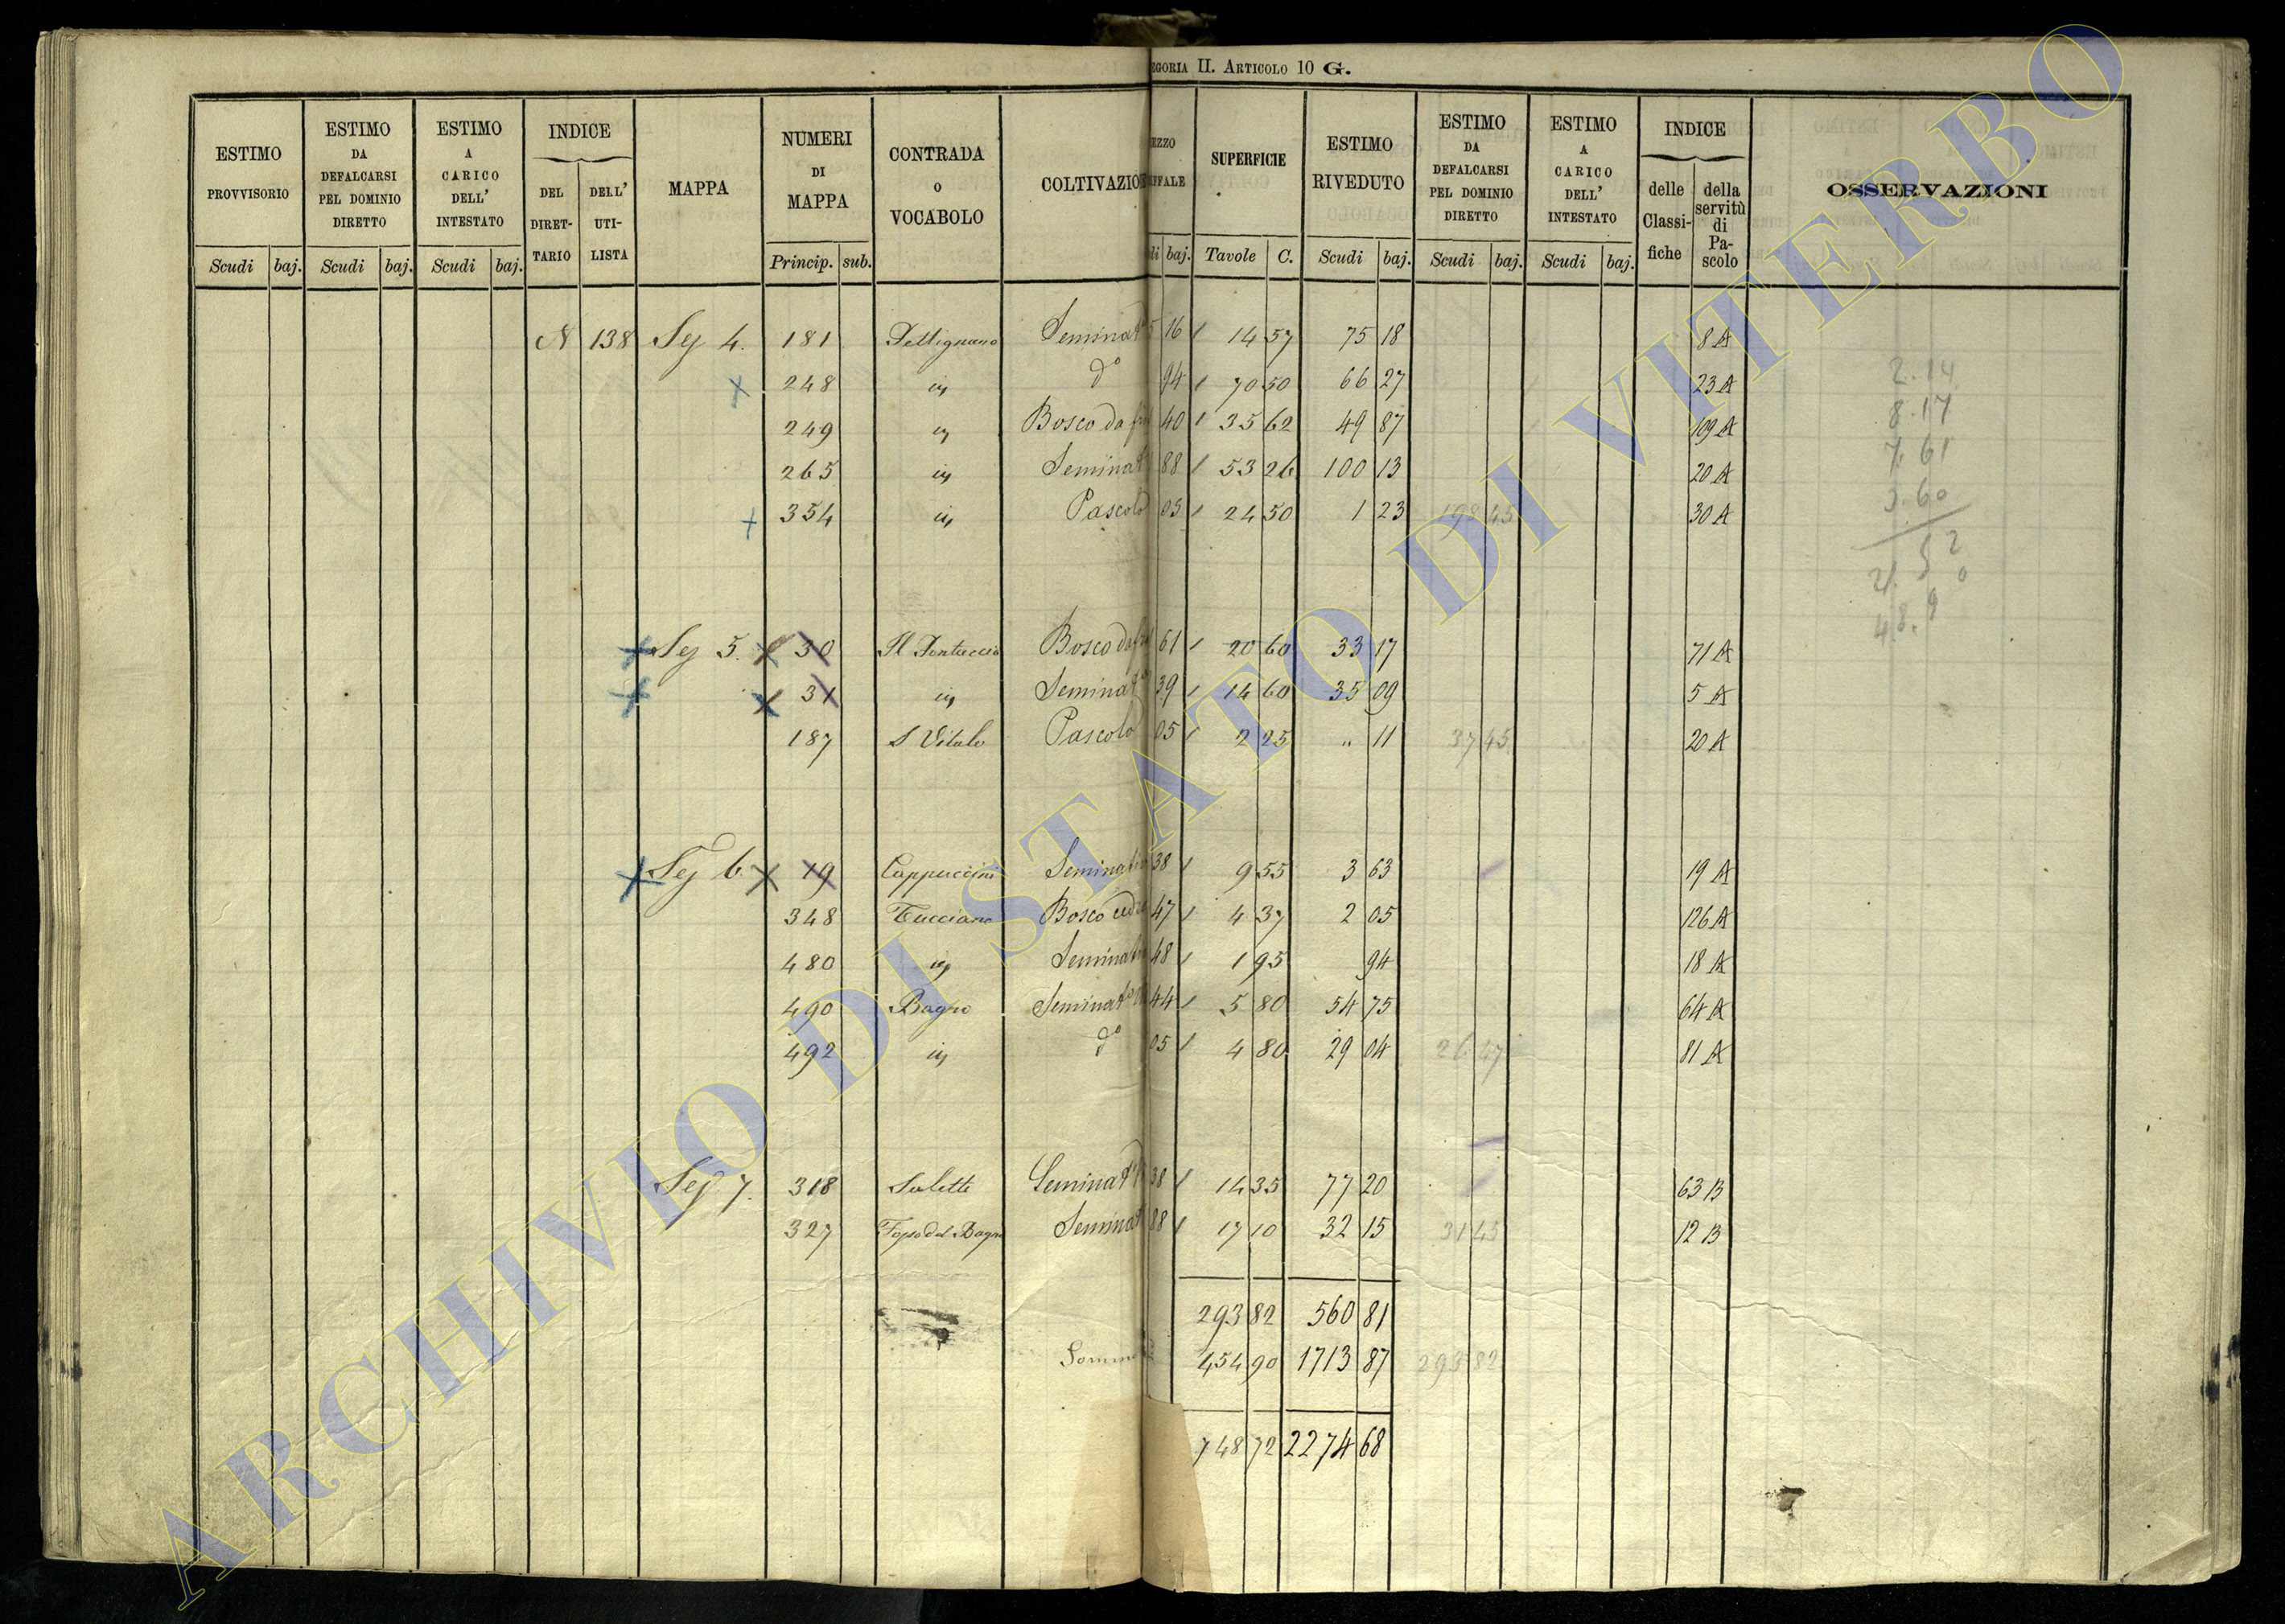 EGORIA II. ARTICOLO 10 G.
ESTIMO PROVVISORIO
ESTIMO DA DEFALCARSI PEL DOMINIO DIRETTO
ESTIMO A CARICO DELL' INTESTATO
INDICE
DEL DIRETTARIO
DELL' UTILISTA
MAPPA
NUMERI DI MAPPA
CONTRADA O VOCABOLO
COLTIVAZION
EZZO IFFALE
SUPERFICIE
ESTIMO RIVEDUTO
ESTIMO DA DEFALCARSI PEL DOMINIO DIRETTO
ESTIMO A CARICO DELL' INTESTATO
INDICE
delle Classifiche
della servitù di Pascolo
OSSERVAZIONI
Scudi baj. Scudi baj. Scudi baj. Princip. sub. di baj. Tavole C. Scudi baj. Scudi baj. Scudi baj.
N 138 Sez 4. 181 Pettignano Seminat° 5 16 14 57 75 18 8 A
248 id d° 94 70 50 66 27 23 A
249 id Bosco da 40 35 62 49 87 109 A
265 id Seminat 88 53 26 100 13 20 A
354 id Pascolo 05 24 50 1 23 198 45 30 A
2.14
8.17
7.61
3.60
Sez 5. 30 Il Pontuccio Bosco da 61 20 60 33 17 71 A
31 id Seminat° 39 14 60 35 09 5 A
187 S Vitale Pascolo 05 2 25 " 11 37 45 20 A
Sez 6. 19 Cappuccini Seminat 38 9 55 3 63 19 A
348 Tucciano Bosco 47 4 37 2 05 126 A
480 id Seminat 48 1 95 94 18 A
490 Bagno Seminat° 44 5 80 54 75 64 A
492 id d° 05 4 80 29 04 26 47 81 A
Sez. 7. 318 Salette Seminat° 38 14 35 77 20 63 B
327 Fosso del Bagno Seminat 88 17 10 32 15 31 45 12 B
293 82 560 81
Somma 454 90 1713 87 293 82
748 72 2274 68
ARCHIVIO DI STATO DI VITERBO